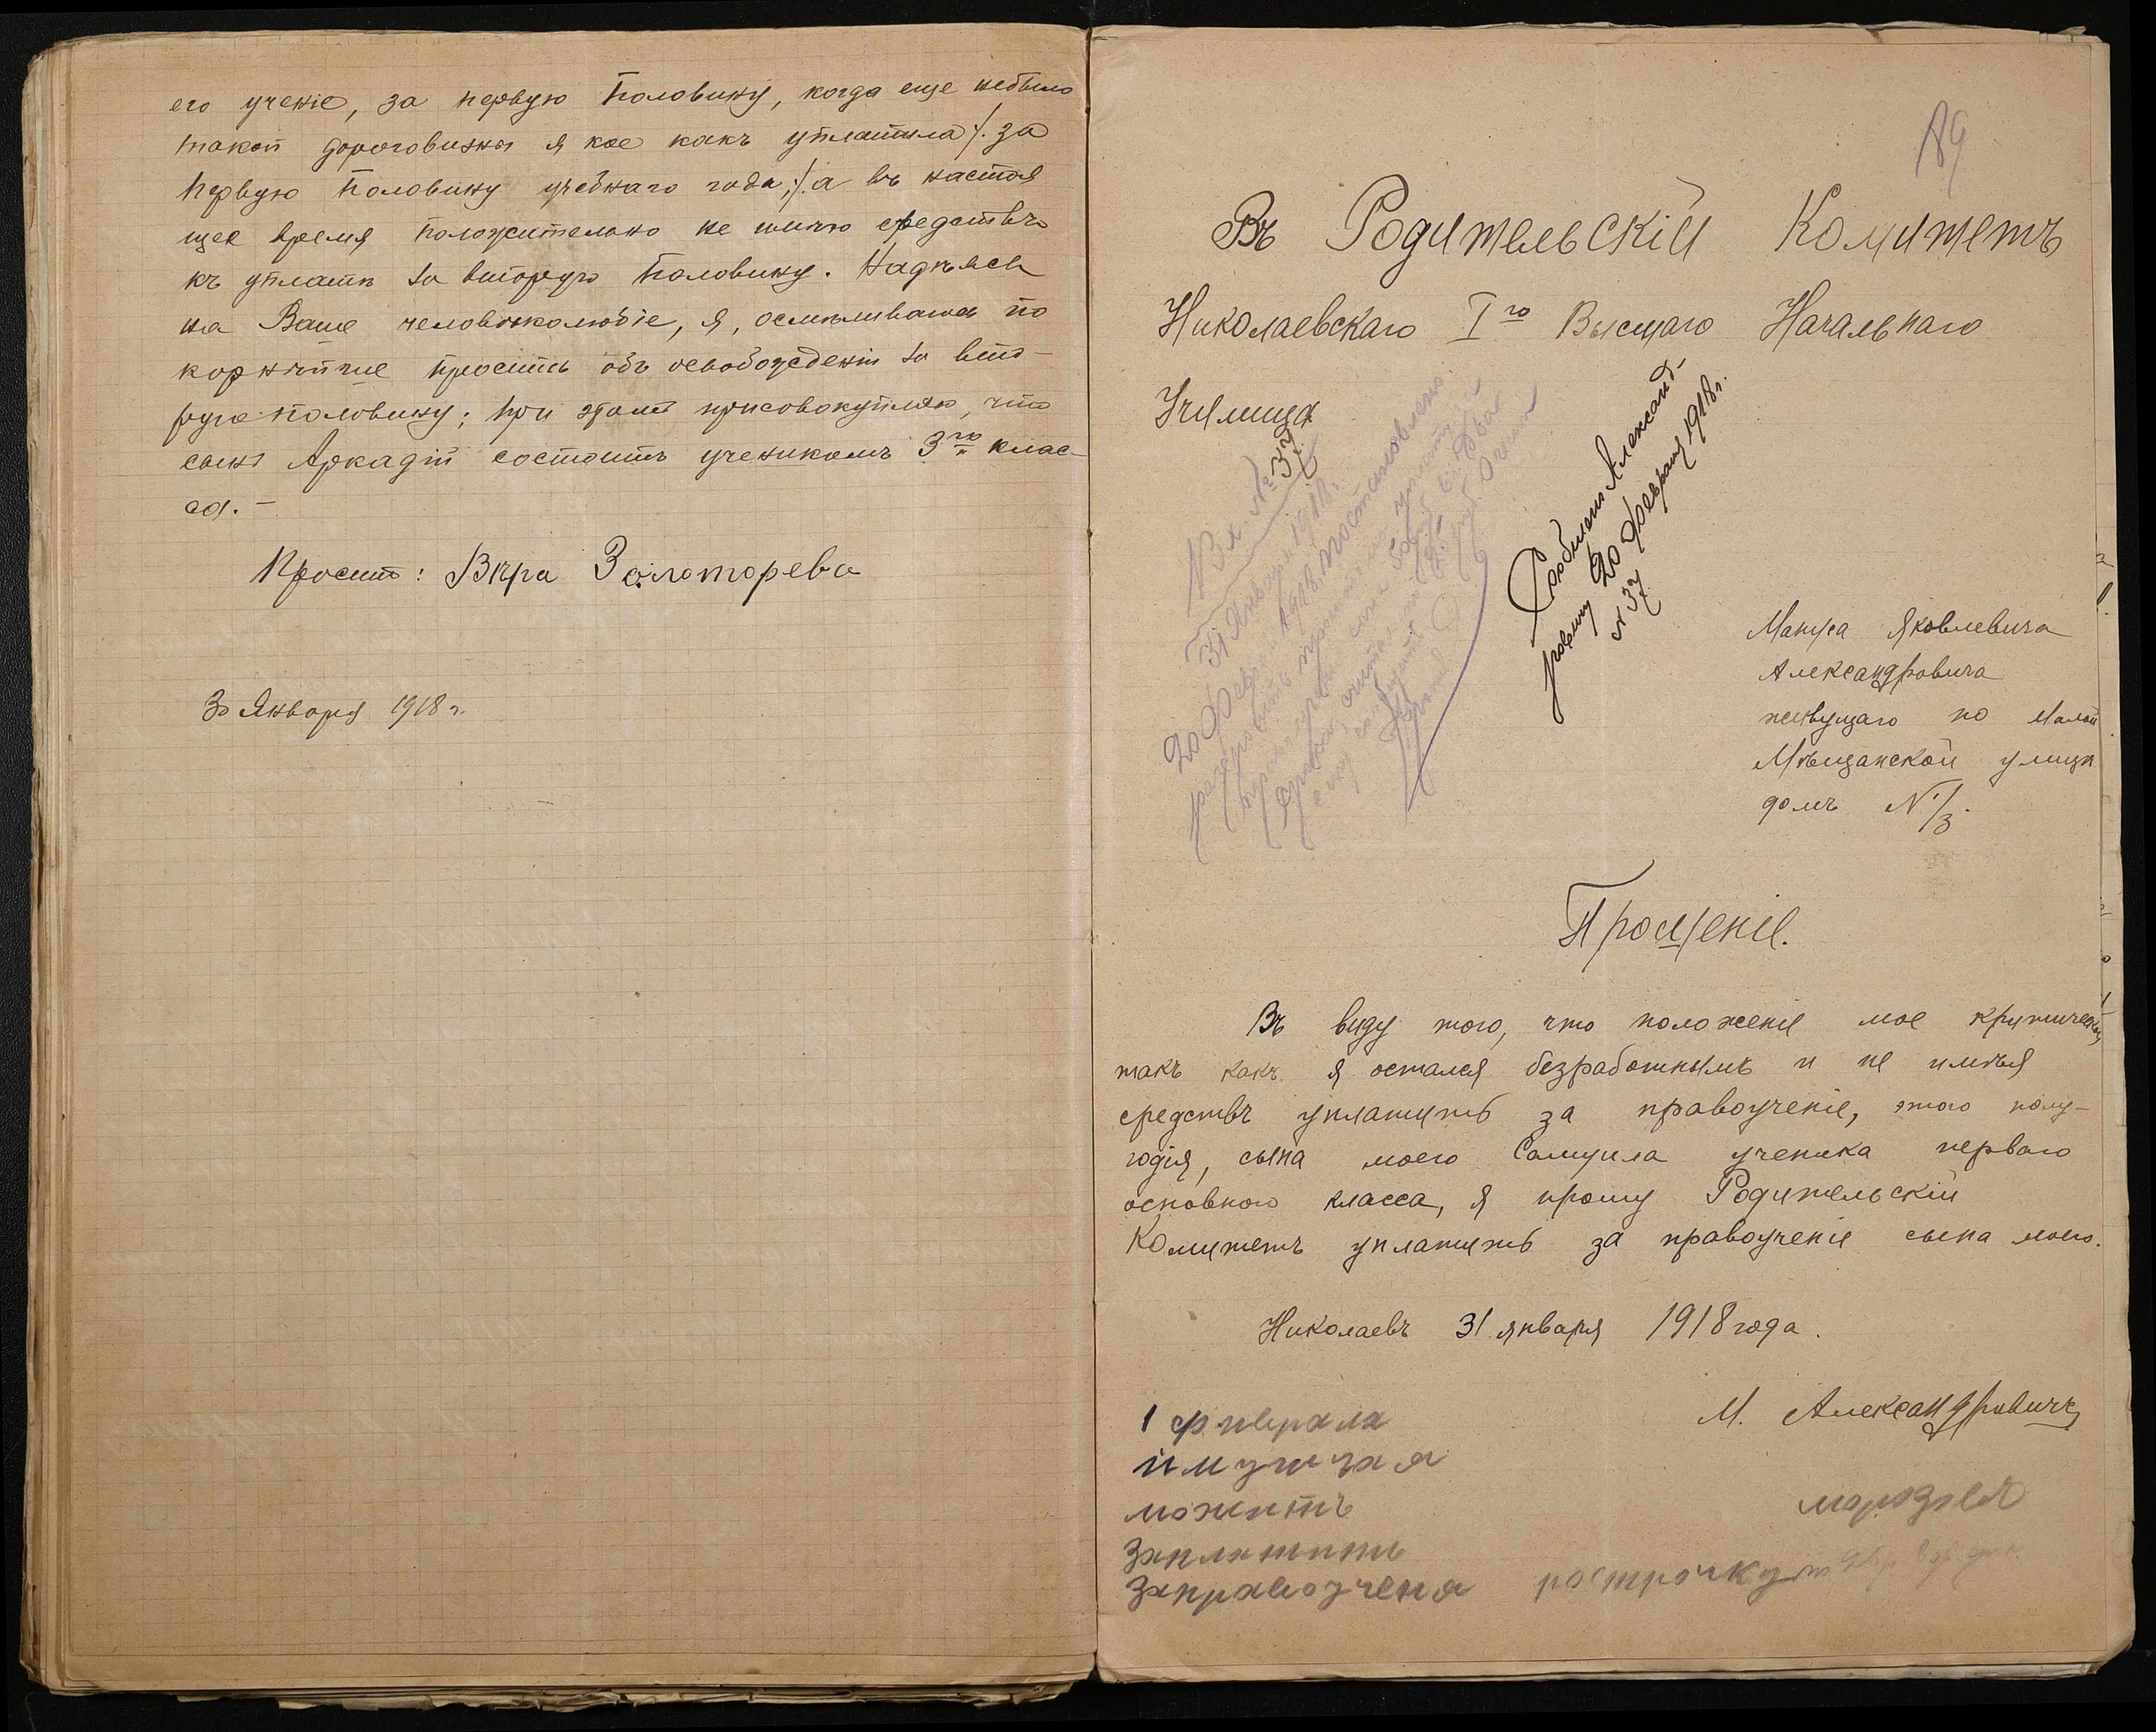 его ученіе, за первую половину, когда еще небыло
такой дороговизны я кое какъ уплатила /. за
первую половину учебнаго года; /. а въ настоя
щее время положительно не имѣю средствъ
къ уплатѣ за вторую половину. Надѣясь
на Ваше человѣколюбіе, я, осмѣливаюсь по
корнѣйше просить объ освобожденіи за вто-
рую половину; при этомъ присовокупляю, что
сынъ Аркадій состоитъ ученикомъ 3го клас-
са. –
Проситъ: Вѣра Золоторева
30 Января 1918 г.
89
Въ Родительскій Комитетъ
Николаевскаго Iго Высшаго Начальнаго
Училища
Вх. № 37
31 Января 1918 г.
20 Февраля 1918. Постановлено:
Сообщено Александ-
ровичу 20 Февраля 1918 г.
№ 37
Мануса Яковлевича
Александровича
живущаго по Малой
Мѣщанской улицѣ
домъ № 3.
Прошеніе.
Въ виду того, что положеніе мое критическое,
такъ какъ я остался безработнымъ и не имѣя
средствъ уплатить за правоученіе, этого полу-
годія, сына моего Самуила ученика перваго
основного класса, я прошу Родительскій
Комитетъ уплатить за правоученіе сына моего.
Николаевъ 31 января 1918 года.
М. Александровичъ
1 февраля
можитъ
заплатить
заправоученя